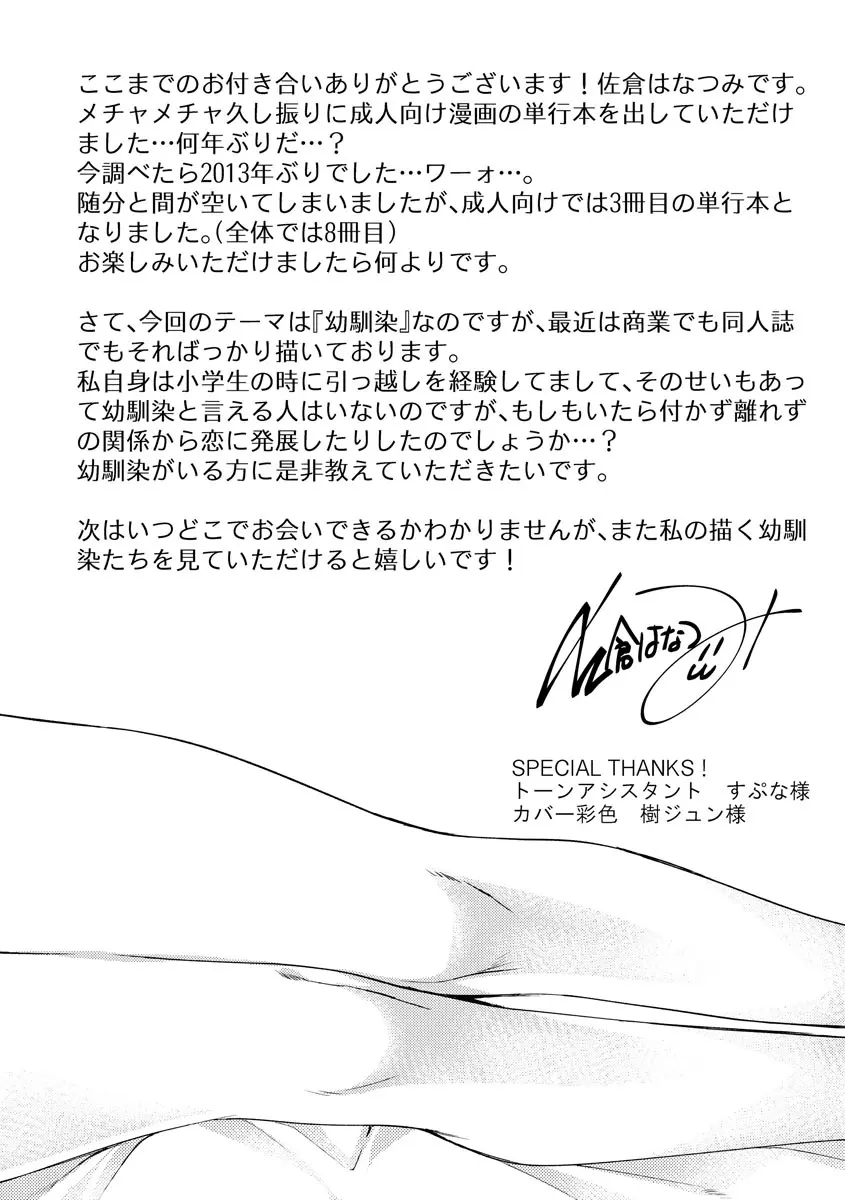 ここまでのお付き合いありがとうございます！佐倉はなつみです。
メチャメチャ久し振りに成人向け漫画の単行本を出していただけ
ました…何年ぶりだ…？
今調べたら2013年ぶりでした…ワーォ…。
随分と間が空いてしまいましたが、成人向けでは3冊目の単行本と
なりました。（全体では8冊目）
お楽しみいただけましたら何よりです。
さて、今回のテーマは『幼馴染』なのですが、最近は商業でも同人誌
でもそればっかり描いております。
私自身は小学生の時に引っ越しを経験してまして、そのせいもあっ
て幼馴染と言える人はいないのですが、もしもいたら付かず離れず
の関係から恋に発展したりしたのでしょうか…？
幼馴染がいる方に是非教えていただきたいです。
次はいつどこでお会いできるかわかりませんが、また私の描く幼馴
染たちを見ていただけると嬉しいです！
佐倉はなつみ
SPECIAL THANKS！
トーンアシスタント　すぷな様
カバー彩色　樹ジュン様